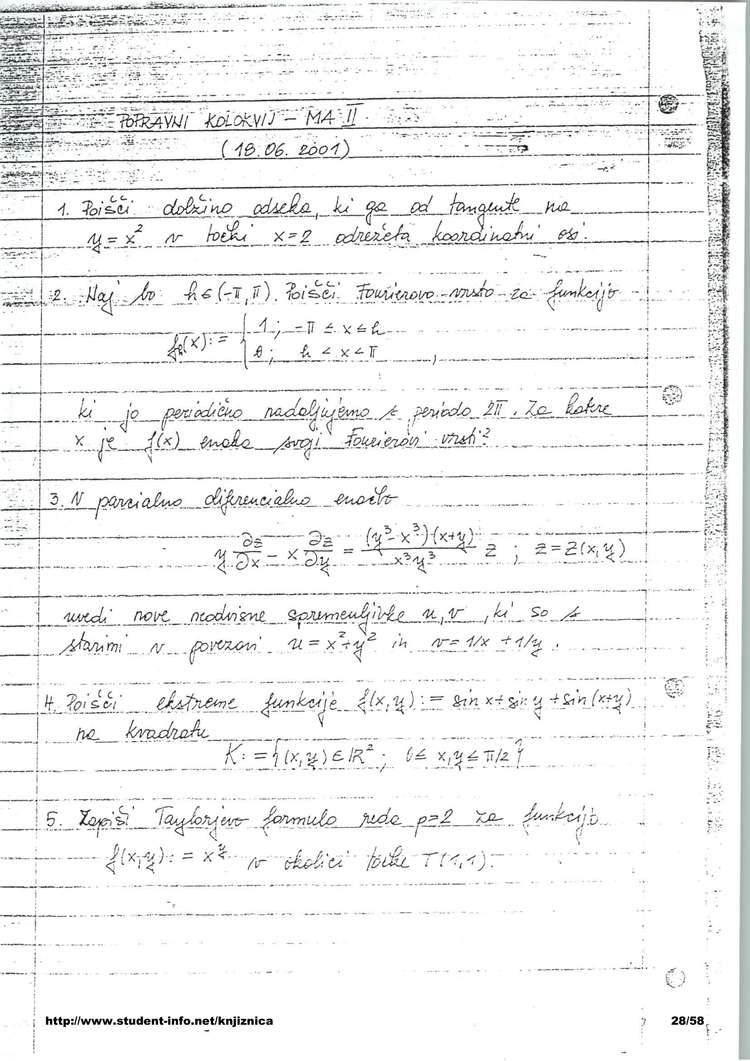 POPRAVNI KOLOKVIJ - MA II
(18.06.2001)
1. Poišči dolžino odseka, ki ga od tangente na
y = x² v točki x=2 odrežeta koordinatni osi.
2. Naj bo h ∈ (-π, π). Poišči Fourierovo vrsto za funkcijo
f_h(x) := { 1 ; -π ≤ x ≤ h
0 ; h < x < π ,
ki jo periodično nadaljujemo s periodo 2π. Za katere
x je f(x) enaka svoji Fourierovi vrsti?
3. V parcialno diferencialno enačbo
y ∂z/∂x - x ∂z/∂y = (y³-x³)(x+y)/x³y³ z ; z = z(x,y)
uvedi nove neodvisne spremenljivke u, v, ki so s
starimi v povezavi u = x²+y² in v = 1/x + 1/y.
4. Poišči ekstreme funkcije f(x,y) := sin x + sin y + sin (x+y)
na kvadratu
K := {(x,y) ∈ IR² ; 0 ≤ x,y ≤ π/2}
5. Zapiši Taylorjevo formulo reda p=2 za funkcijo
f(x,y) := x^y v okolici točke T(1,1).
http://www.student-info.net/knjiznica 28/58